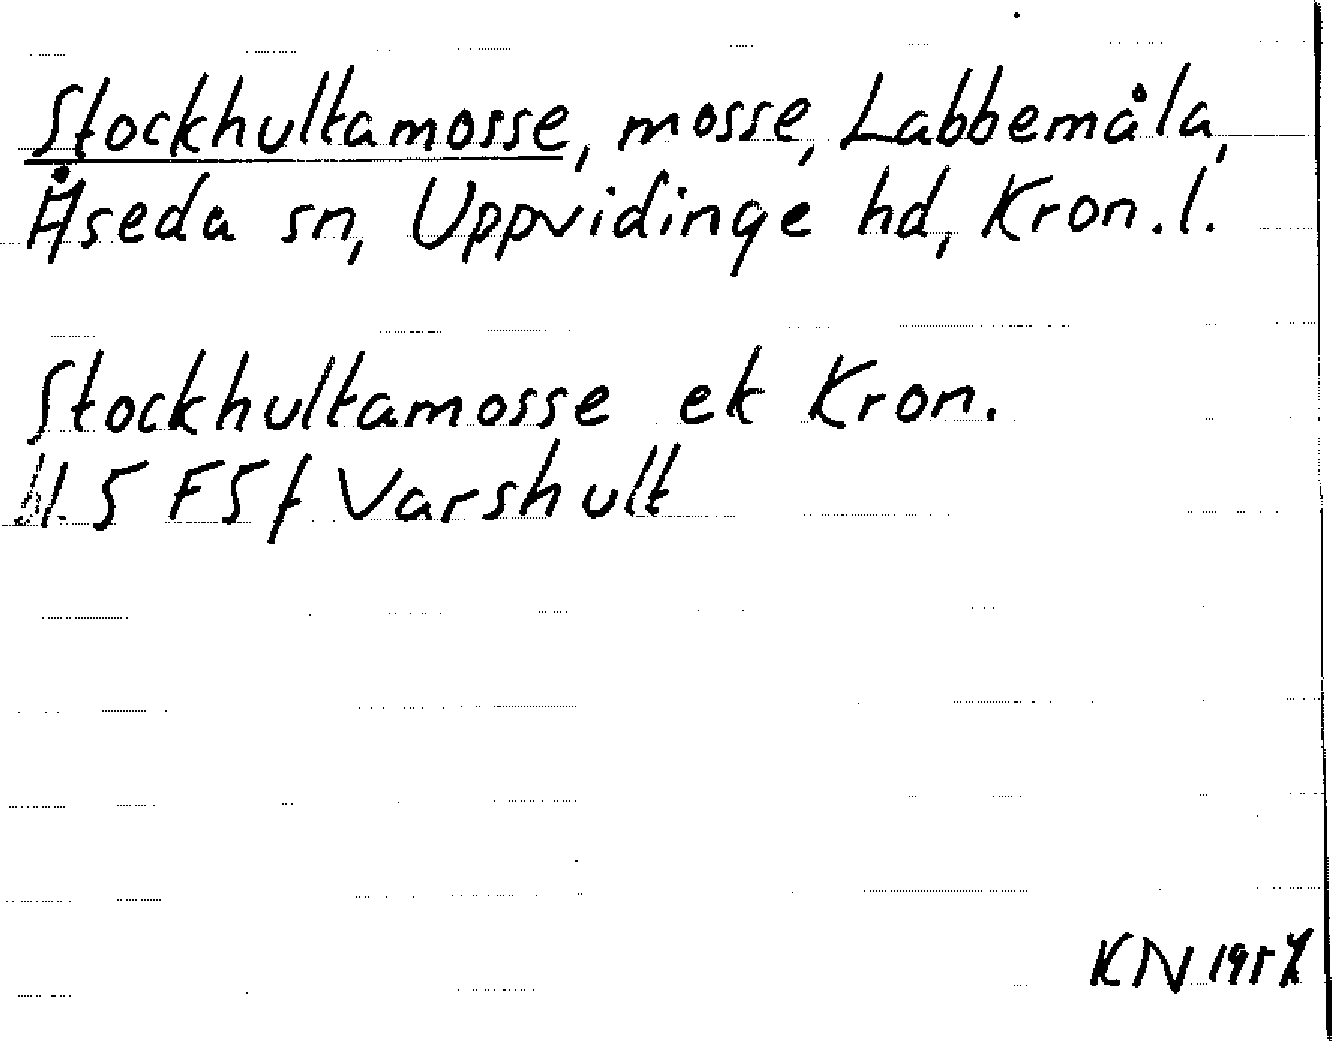 Stockhultamosse, mosse, Labbemåla,
Åseda sn, Uppvidinge hd, Kron. l.
Stockhultamosse ek Kron.
bl. 5 F 5 f Varshult
KN